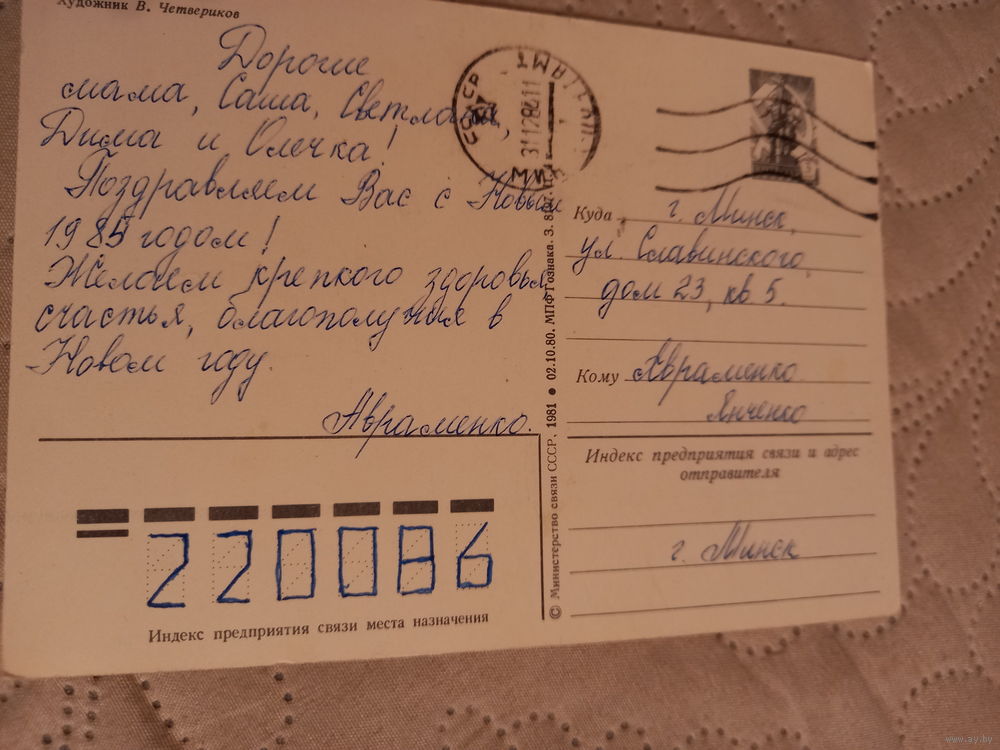 Художник В. Четвериков
Дорогие
мама, Саша, Светлана,
Дима и Олечка!
Поздравляем Вас с Новым
1985 годом!
Желаем крепкого здоровья,
счастья, благополучия в
Новом году.
Авраменко.
СССР
31128411
Куда г. Минск,
ул. Славинского,
дом 23, кв 5.
Кому Авраменко
Янченко
Индекс предприятия связи и адрес
отправителя
г. Минск
220086
Индекс предприятия связи места назначения
© Министерство связи СССР, 1981 ● 02.10.80. МПФ Гознака. З.
www.ay.by